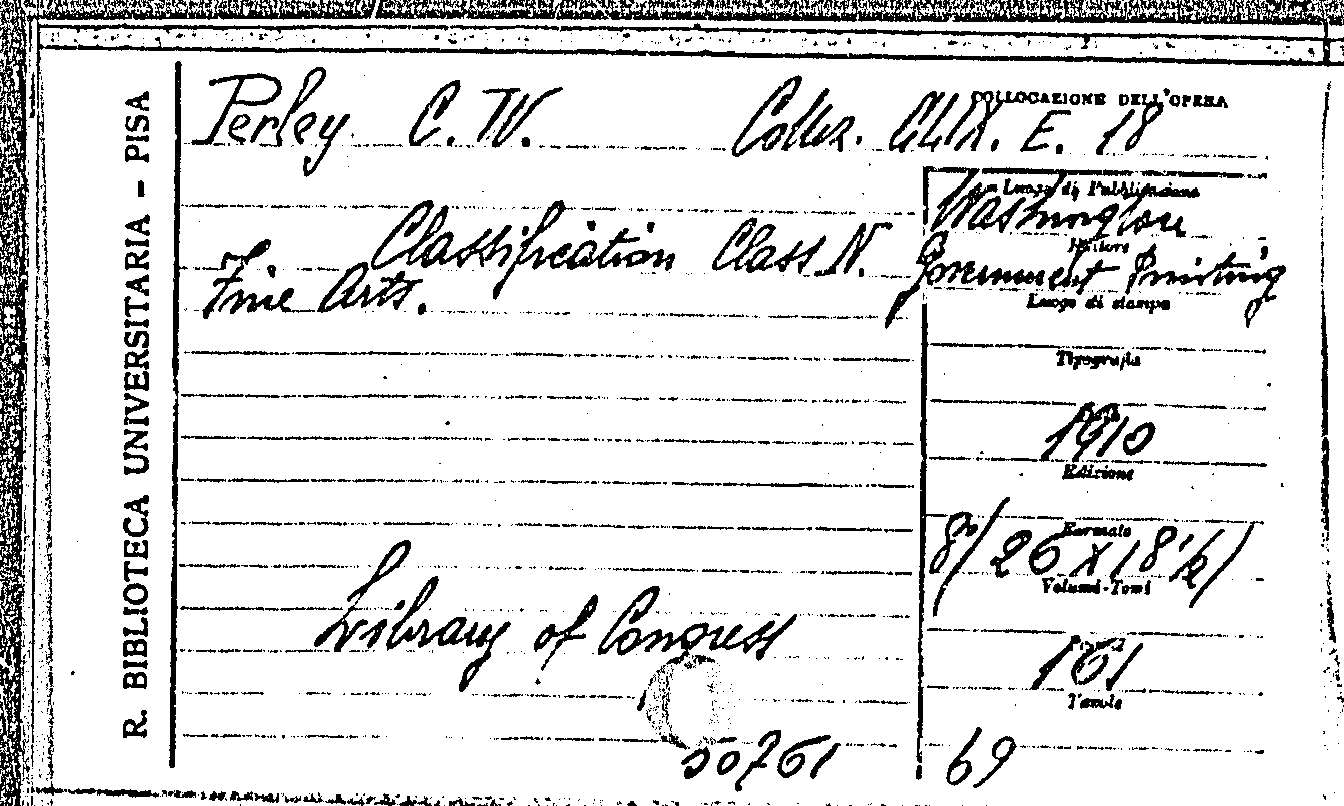 R. BIBLIOTECA UNIVERSITARIA - PISA
COLLOCAZIONE DELL'OPERA
Perley C. W. Collez. E. 18
Luogo di Pubblicazione
Washington
Editore
Classification Class N. Government Printing
Fine Arts.
Luogo di stampa
Tipografia
1910
Edizione
Formato
8°/ 26 x 18 1/2/
Volumi-Tomi
Library of Congress
161
Tavole
50761 69